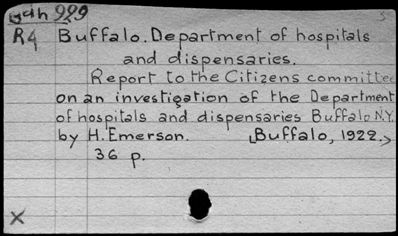 Gdh 929
R4 Buffalo. Department of hospitals
and dispensaries.
Report to the Citizens committee
on an investigation of the Department
of hospitals and dispensaries Buffalo N.Y.
by H. Emerson. [Buffalo, 1922.>
36 p.
X